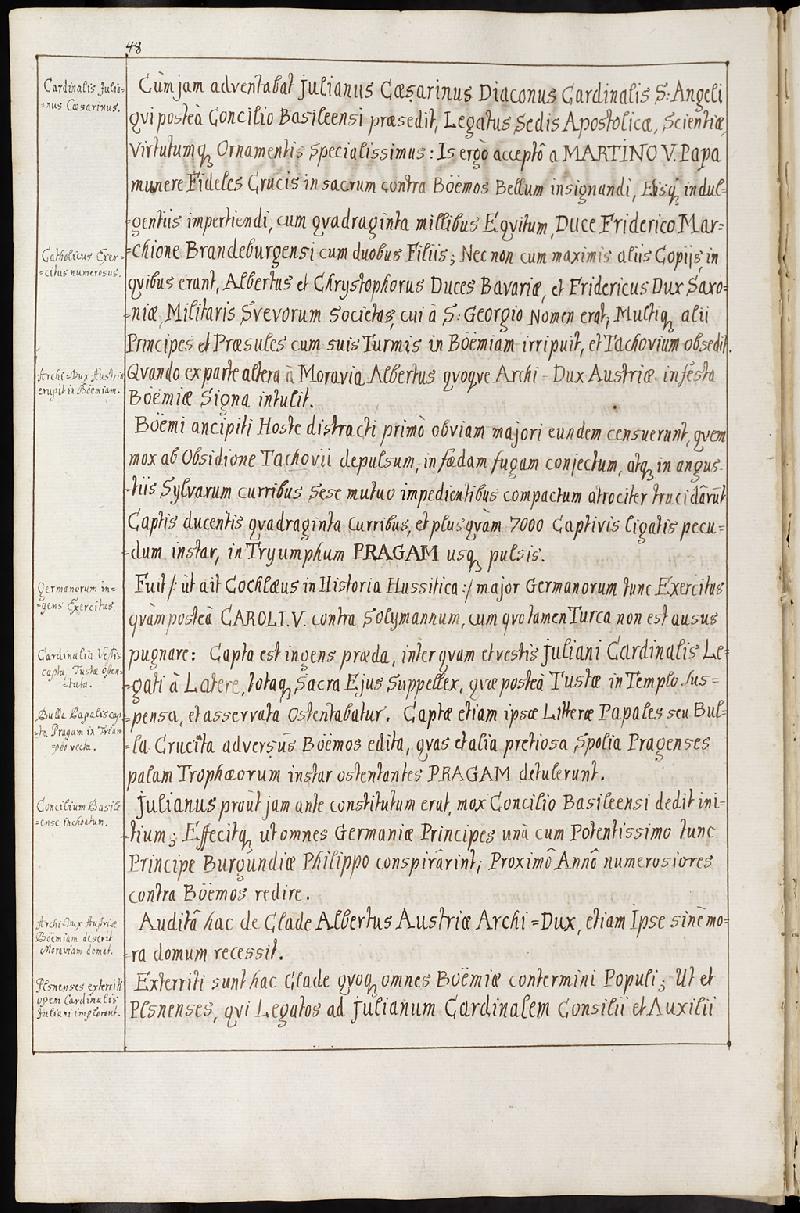 48
Cardinalis Juli=
=nus Cæsarinus.
Cùm jam adventabat Julianus Cæsarinus Diaconus Cardinalis S: Angeli
qvi posteà Concilio Basileensi præsedit, Legatus Sedis Apostolicæ, Scientiæ,
Virtutumq, Ornamentis specialissimus: Is ergò acceptô a MARTINO V. Papa
munere Fideles Crucis in sacrum contra Böemos Bellum insignandi, Eisq, indul=
=gentiis impertiendi, cum qvadraginta millibus Eqvitum, Duce Friderico Mar=
Catholicus Exer=
=citus numerosus.
=chione Brandeburgensi cum duobus Filiis; Nec non cum maximis aliis Copijs, in
qvibus erant, Albertus et Chrystophorus Duces Bavariæ, et Fridericus Dux Saxo=
=niæ, Militaris Svevorum Societas, cui à S: Georgio Nomen erat; Multiq, alii
Principes et Præsules cum suis Turmis in Böemiam irripuit, et Tachovium obsedit.
Archi=Dux Austriæ
erupit in Böemiam.
Qvando ex parte altera à Moravia Albertus qvoqve Archi=Dux Austriæ infesta
Böemiæ Signa intulit.
Böemi ancipiti Hoste distracti primò obviam majori eundem censuerunt, qvem
mox ab Obsidione Tachovii depulsum, in fædam fugam conjectum, atq, in angus=
=tiis Sylvarum curribus sese mutuo impedientibus compactum atrociter trucidârût
Captis ducentis qvadraginta Curribus, et plusqvàm 7000 Captivis ligatis pecu=
=dum instar, in Tryumphum PRAGAM usq, pulsis.
Germanorum in=
=gens Exercitus
Fuit /: ut ait Cochlæus in Historia Hussitica :/ major Germanorum tunc Exercitus
qvàm posteà CAROLI. V. contra Solymannum, cum qvo tamen Turca non est ausus
Cardinalis Vestis
capta, Tustæ osten=
=tata.
pugnare: Capta est ingens præda, inter qvam et vestis Juliani Cardinalis Le=
=gati à Latere, totaq, Sacra Ejus Suppellex, qvæ posteà Tustæ in Templo sus=
Bulla Papalis cap=
=ta Pragam in Trium=
=pho vecta.
=pensa, et asservata Ostentabatur. Captæ etiam ipsæ Litteræ Papales seu Bul=
=la Cruciata adversùs Böemos edita, qvas et alia pretiosa Spolia Pragenses
palam Trophæorum instar ostentantes PRAGAM detulerunt.
Concilium Basile=
=ense inchoatum.
Julianus proùt jam ante constitutum erat, mox Concilio Basileensi dedit ini=
=tium; Effecitq, ut omnes Germaniæ Principes unà cum Potentissimo tunc
Principe Burgundiæ Philippo conspirârint; Proximô Annô numerosiores
contra Böemos redire.
Archi=Dux Austriæ
Böemiam deserit
Moraviam domat.
Auditâ hac de Clade Albertus Austriæ Archi=Dux, etiam Ipse sinè mo=
=ra domum recessit.
Plsnenses exterriti
opem Cardinalis
Juliani implorant.
Exterriti sunt hac Clade qvoq, omnes Böemiæ contermini Populi; Ut et
Plsnenses, qvi Legatos ad Julianum Cardinalem Consilii et Auxilii